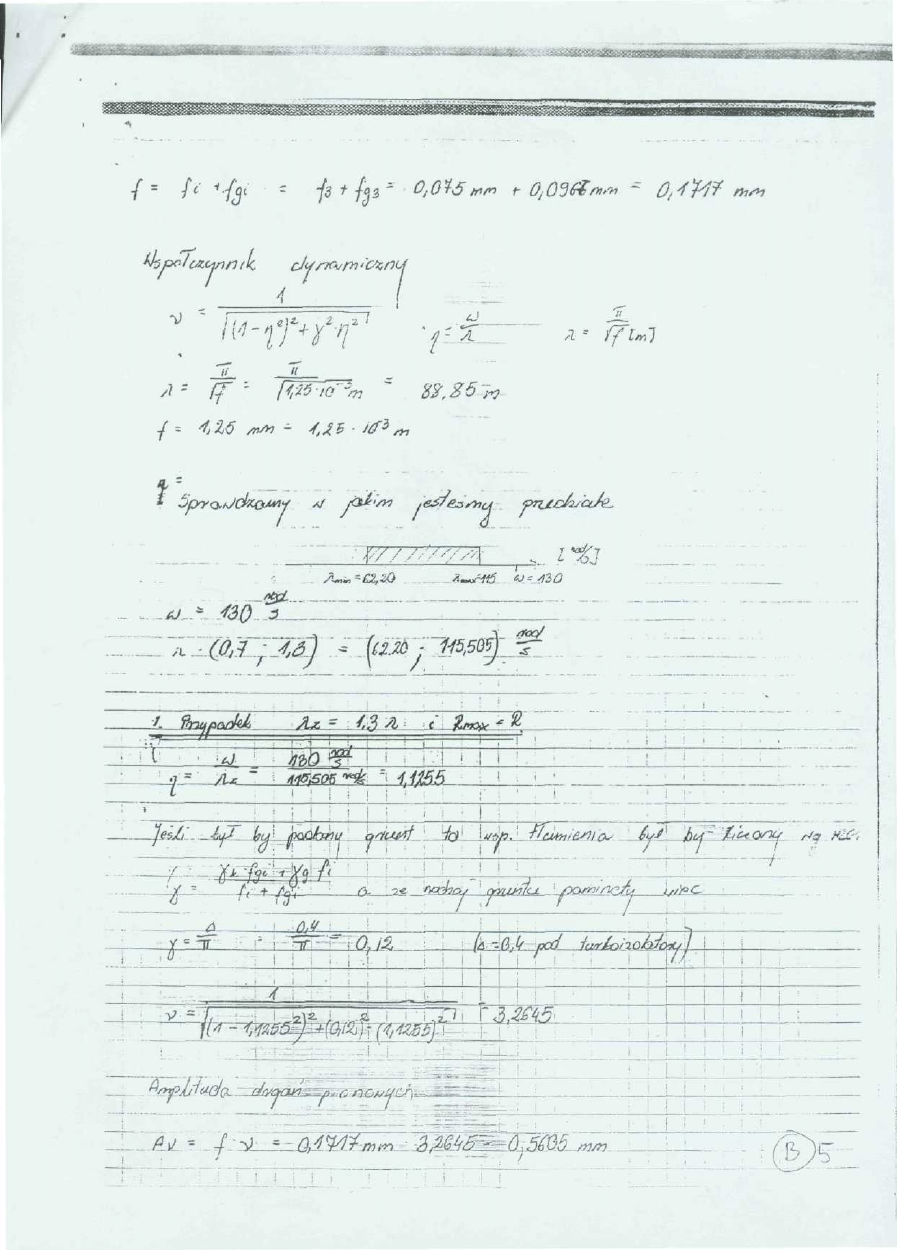 f = fi + fgi = f3 + fg3 = 0,075 mm + 0,0967 mm = 0,1717 mm
Współczynnik dynamiczny
ν = 1 / √((1-η²)² + γ²·η²) η = ω/λ λ = π/√f [m]
λ = π/√f = π/√(1,25·10⁻³m) = 88,85 m
f = 1,25 mm = 1,25 · 10⁻³ m
Sprawdzamy w jakim jesteśmy przedziale
[rad/s]
λmin = 62,20 λmax = 115 ω = 130
ω = 130 rad/s
λ · (0,7 ; 1,3) = (62.20 ; 115,505) rad/s
1. Przypadek λz = 1,3 λ i λmax = λ
η = ω/λz = 130 rad/s / 115,505 rad/s = 1,1255
Jeśli był by podany grunt to wsp. tłumienia był by liczony wg
γ = (γk fgi + γg fi) / (fi + fgi) a że rodzaj gruntu pominęty więc
γ = Δ/π = 0,4/π = 0,12 (Δ = 0,4 pod turboizolatory)
ν = 1 / √((1 - 1,1255²)² + (0,12)² · (1,1255)²) = 3,2645
Amplituda drgań pionowych
Av = f · ν = 0,1717 mm · 3,2645 = 0,5605 mm
B 5